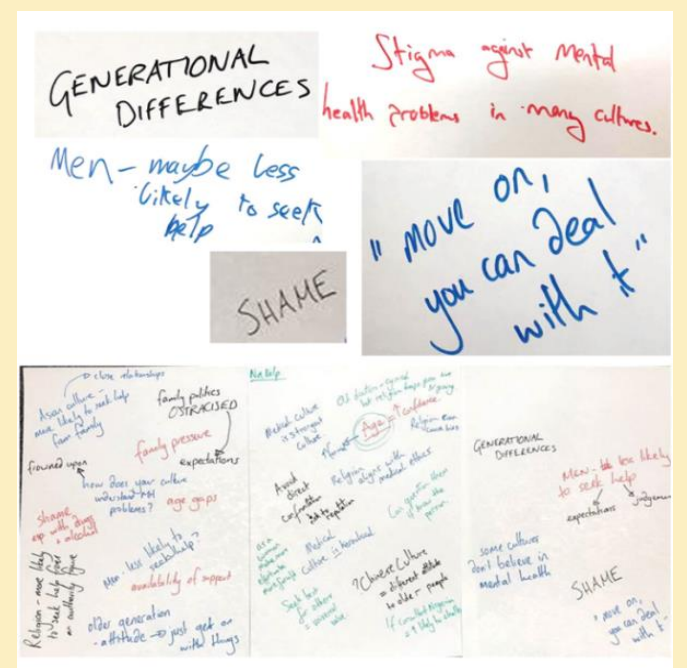 GENERATIONAL
DIFFERENCES
Stigma against Mental
health problems in many cultures.
Men – maybe less
likely to seek
help
SHAME
"move on,
you can deal
with it"
close relationships
Asian culture –
more likely to seek help
from family
family politics
OSTRACISED
family pressure
frowned upon
expectations
how does your culture
understand MH
problems?
age gaps
shame
esp with drugs
+ alcohol
Men - less likely to
seek help?
availability of support
Religion - more likely
to seek help from
an authority figure
older generation
- attitude → just get on
with things
Medical culture
is strongest
culture
Age
↑ confidence
Religion can
cause
Religion
aligns with
medical ethics
Avoid
direct
confrontation
Can question them
if know the
person
as a
woman
make more
Medical
culture is hierarchical
Seek help
for others
? Chinese Culture
= different attitude
to older people
If consultant
GENERATIONAL
DIFFERENCES
Men - less likely
to seek help
expectations
judgement
some cultures
don't believe in
mental health
SHAME
"move on,
you can deal
with it"